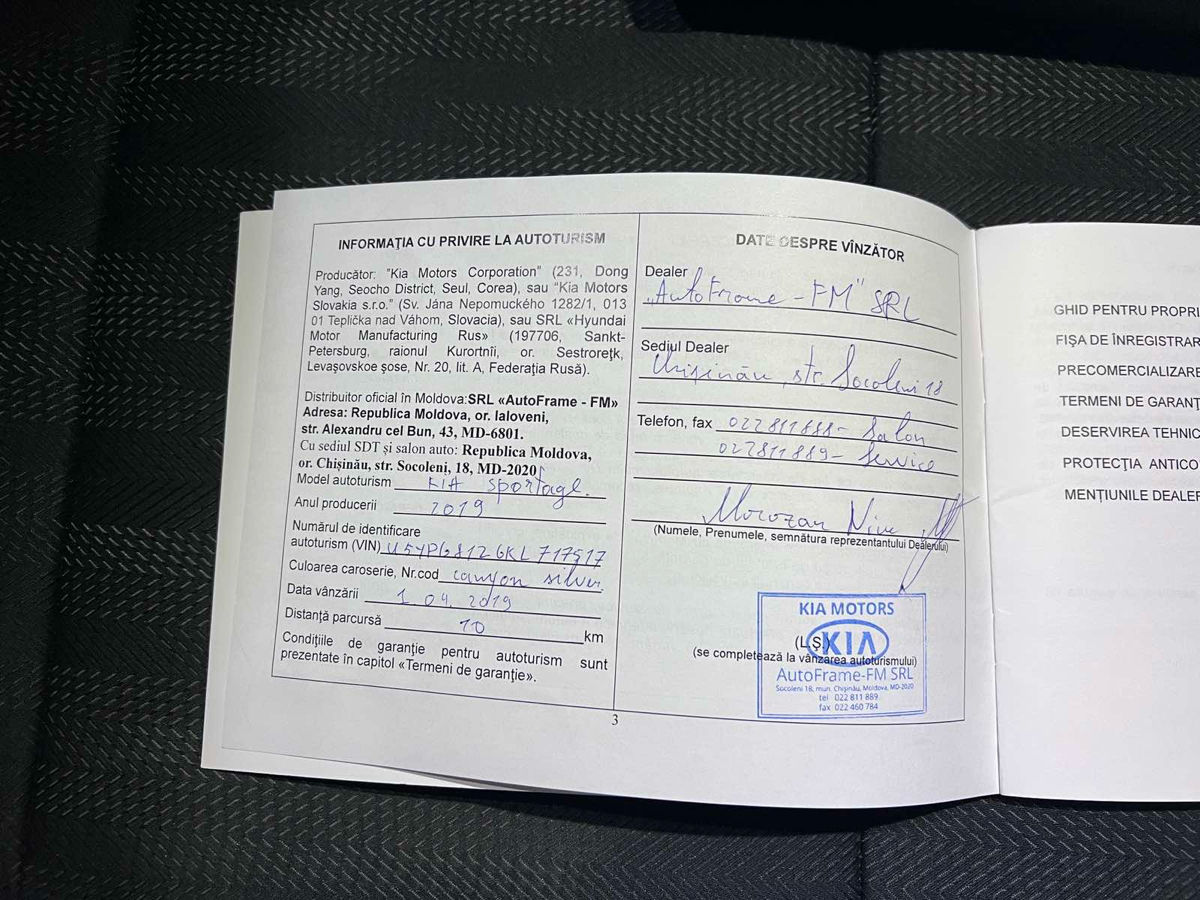 INFORMAŢIA CU PRIVIRE LA AUTOTURISM
Producător: "Kia Motors Corporation" (231, Dong
Yang, Seocho District, Seul, Corea), sau "Kia Motors
Slovakia s.r.o." (Sv. Jána Nepomuckého 1282/1, 013
01 Teplička nad Váhom, Slovacia), sau SRL «Hyundai
Motor Manufacturing Rus» (197706, Sankt-
Petersburg, raionul Kurortnîi, or. Sestroreţk,
Levaşovskoe şose, Nr. 20, lit. A, Federaţia Rusă).
Distribuitor oficial în Moldova:SRL «AutoFrame - FM»
Adresa: Republica Moldova, or. Ialoveni,
str. Alexandru cel Bun, 43, MD-6801.
Cu sediul SDT și salon auto: Republica Moldova,
or. Chișinău, str. Socoleni, 18, MD-2020
Model autoturism KIA Sportage.
Anul producerii 2019
Numărul de identificare
autoturism (VIN) U5YPG812GKL717517
Culoarea caroserie, Nr.cod canyon silver
Data vânzării 1.04.2019
Distanţă parcursă 10 km
Condiţiile de garanţie pentru autoturism sunt
prezentate în capitol «Termeni de garanţie».
DATE DESPRE VÎNZĂTOR
Dealer
„AutoFrame - FM" SRL
Sediul Dealer
Chişinău, str. Socoleni 18
Telefon, fax 022811888 - Salon
022811889 - Service
Morozan
(Numele, Prenumele, semnătura reprezentantului Dealerului)
KIA MOTORS
(L.Ş.)
KIA
(se completează la vânzarea autoturismului)
AutoFrame-FM SRL
Socoleni 18, mun. Chişinău, Moldova, MD-2020
tel 022 811 889
fax 022 460 784
3
GHID PENTRU PROPRI
FIŞA DE ÎNREGISTRAR
PRECOMERCIALIZARE
TERMENI DE GARANŢ
DESERVIREA TEHNIC
PROTECŢIA ANTICO
MENŢIUNILE DEALER